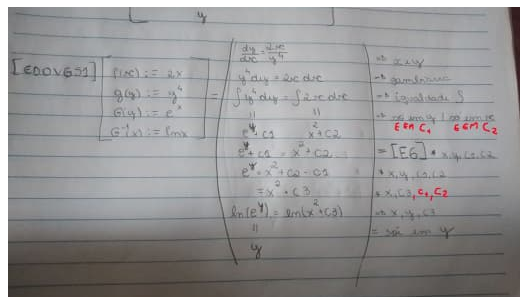 y
[EDOVGS1]
f(x) := 2x
g(y) := y⁴
G(y) := eˣ
G⁻¹(x) := lnx
=
dy/dx = 2x/y⁴
y⁴dy = 2x dx
∫y⁴dy = ∫2x dx
" "
e^y + C1 x² + C2
e^y + C1 = x² + C2
e^y = x² + C2 - C1
= x² + C3
ln(e^y) = ln(x² + C3)
"
y
⇒ x e y
⇒ igualdade ∫
⇒ só em y / só em x
E EM C1 E EM C2
= [EG] * x, y, C1, C2
* x, y, C1, C2
* x, C3, C1, C2
⇒ x, y, C3
= em y